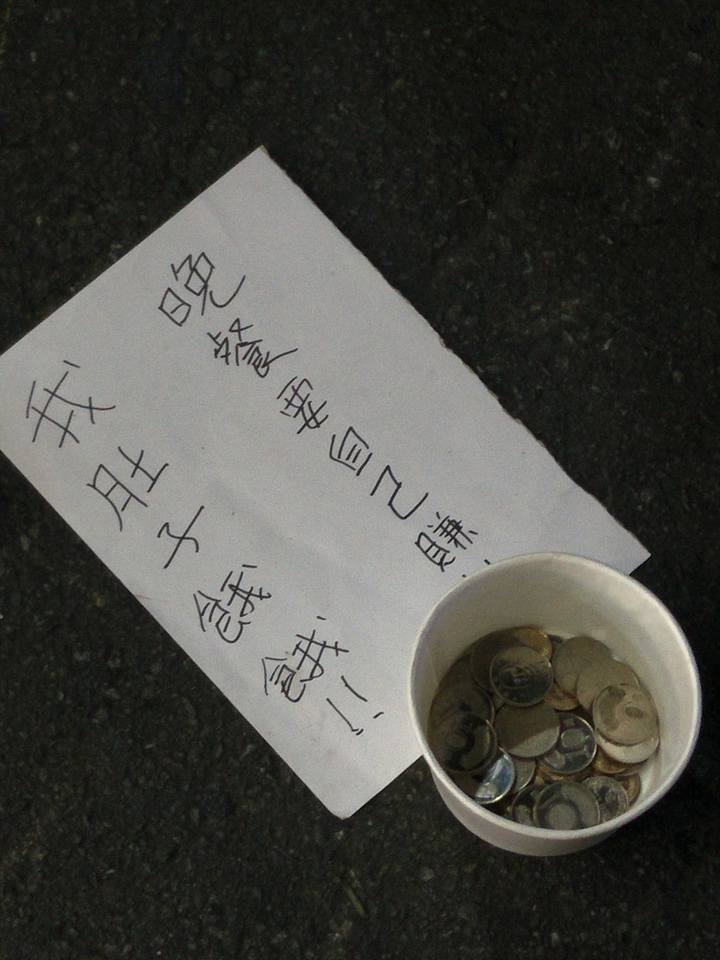 晚餐要自己賺..
我肚子餓餓!!